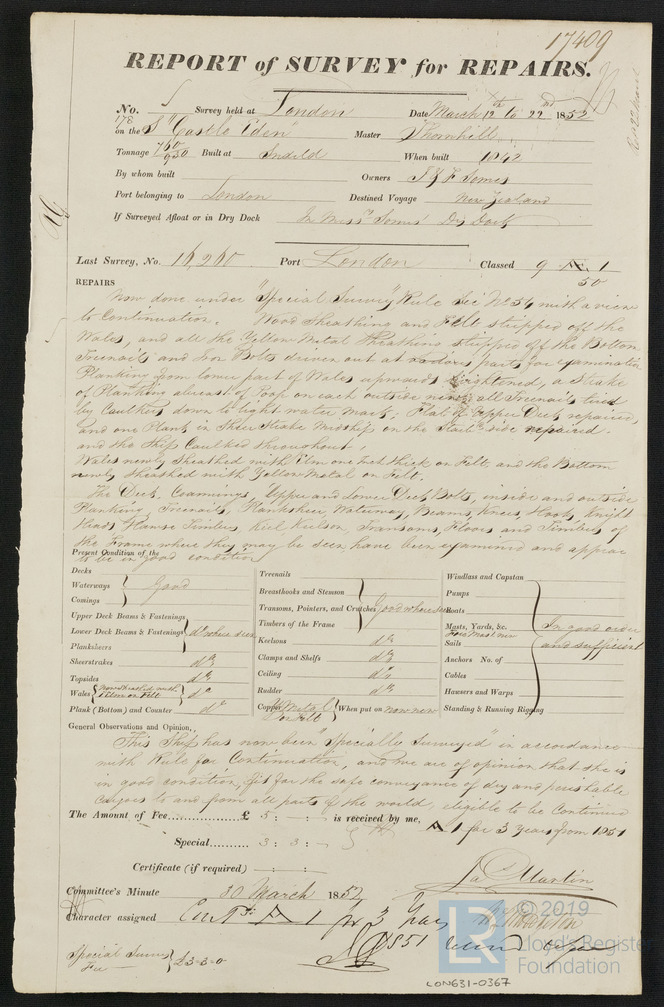 17409
REPORT of SURVEY for REPAIRS.
No. 178 Survey held at London Date March 12th to 22nd 1852
on the S "Castle Eden" Master Thornhill
Tonnage 760/930 Built at When built 1842
By whom built Owners J & F Somes
Port belonging to London Destined Voyage New Zealand
If Surveyed Afloat or in Dry Dock In Messrs Somes' Dry Dock
Last Survey, No. 16,260 Port London Classed 9 A 1
50
REPAIRS
Now done under "Special Survey" Rule Sec No 54 with a view
to Continuation. Wood Sheathing and Felt stripped off the
Wales, and all the Yellow Metal Sheathing stripped off the Bottom
Treenails and Iron Bolts driven out at various parts for examination
Planking from lower part of Wales upwards brightened, a Strake
of Planking abreast of Poop on each outside new; all Treenails tried
by Caulkers down to light water mark; Flat of Upper Deck repaired,
and one Plank in Sheer Strake Midship on the Starbd side repaired
and the Ship Caulked throughout,
Wales newly Sheathed with Elm one Inch thick on Felt, and the Bottom
newly sheathed with Yellow Metal on Felt.
The Deck, Coamings, Upper and Lower Deck Bolts, inside and outside
Planking, Treenails, Planksheer, Waterway, Beams, Knees, Hooks, Knight
Heads, Hawse Timbers, Keel Keelson, Transoms, Floors and Timbers of
the Frame where they may be seen, have been examined and appear
to be in good condition
Present Condition of the
Decks
Waterways
Comings
Good
Upper Deck Beams & Fastenings
Lower Deck Beams & Fastenings
Planksheers
do where seen
Sheerstrakes do
Topsides do
Wales now sheathed with Elm on Felt do
Plank (Bottom) and Counter do
Treenails
Breasthooks and Stemson
Transoms, Pointers, and Crutches
Timbers of the Frame
Good where seen
Keelsons do
Clamps and Shelfs do
Ceiling do
Rudder do
Copper Y Metal on Felt When put on now new
Windlass and Capstan
Pumps
Boats
Masts, Yards, &c.
Fore Mast new
Sails
Anchors No. of
Cables
Hawsers and Warps
Standing & Running Rigging
In good order
and sufficient
General Observations and Opinion,
This Ship has now been "Specially Surveyed" in accordance
with Rule for Continuation, and we are of opinion that she is
in good condition, fit for the safe conveyance of dry and perishable
Cargoes to and from all parts of the world, eligible to be Continued
The Amount of Fee £ 5 : - : - is received by me, A 1 for 3 Years from 1851
Special 3 : 3 : -
Certificate (if required) : - :
Jas Martin
Committee's Minute 30 March 1852
Character assigned Contd A 1 for 3 Years
1851
Special Survey
Fee £3-3-0
© 2019
LR
Lloyd's Register
Foundation
LON631-0367